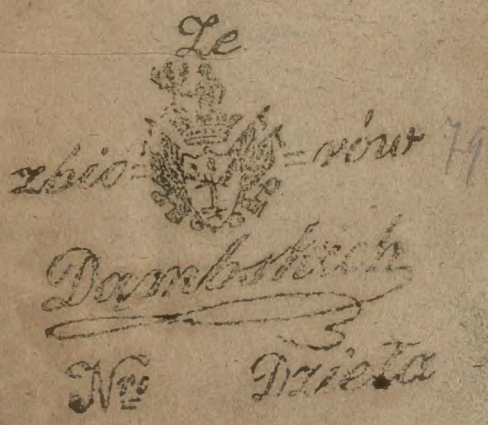 Ze
zbio= =rów 79
Dambskich
Nro Dzieła